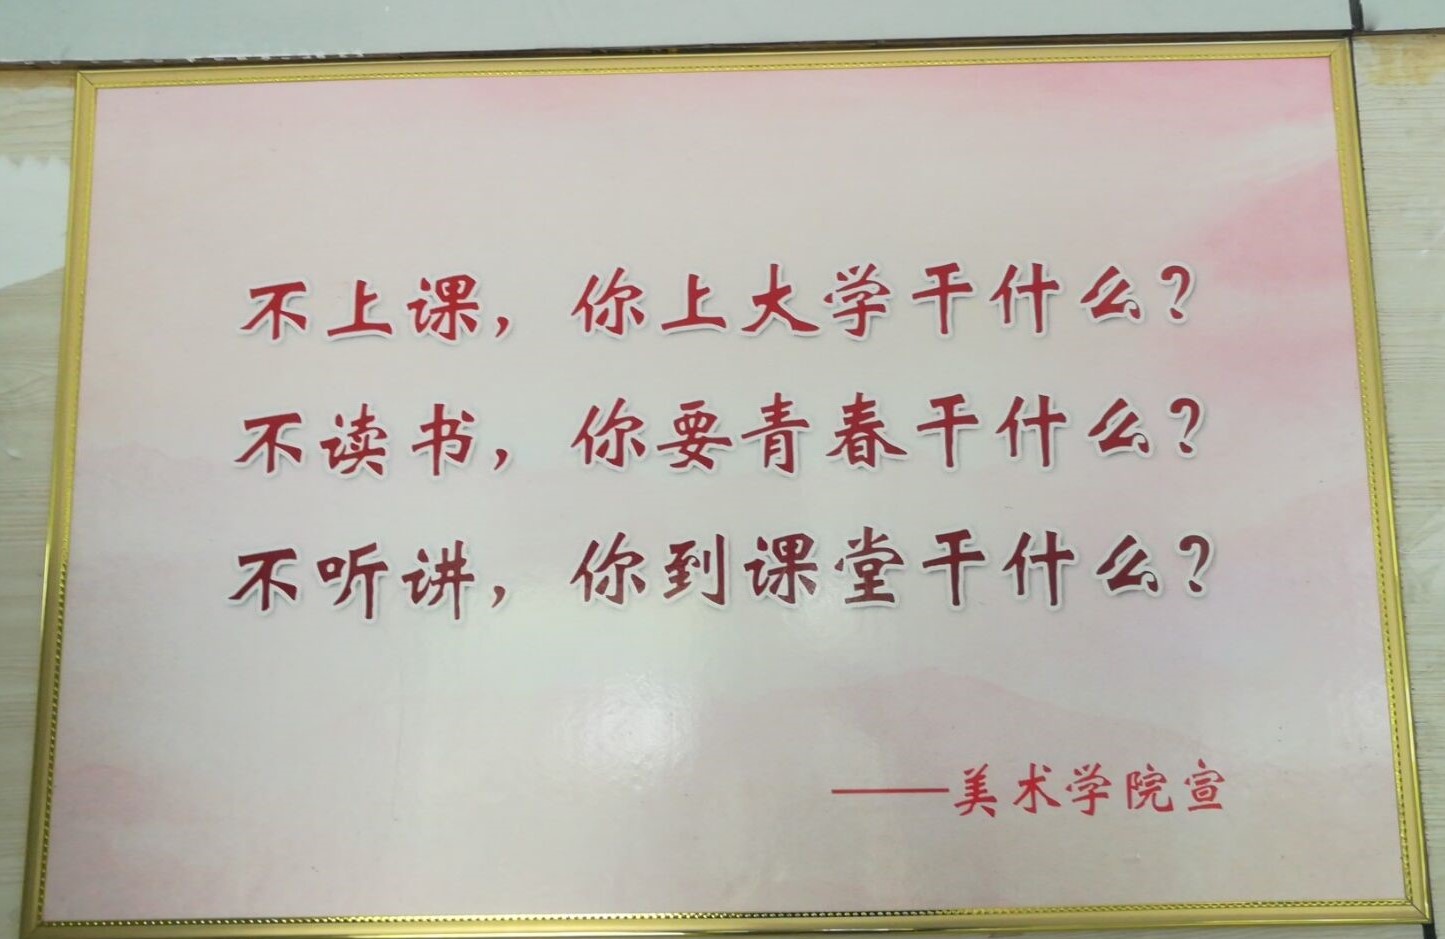 不上课，你上大学干什么？
不读书，你要青春干什么？
不听讲，你到课堂干什么？
——美术学院宣